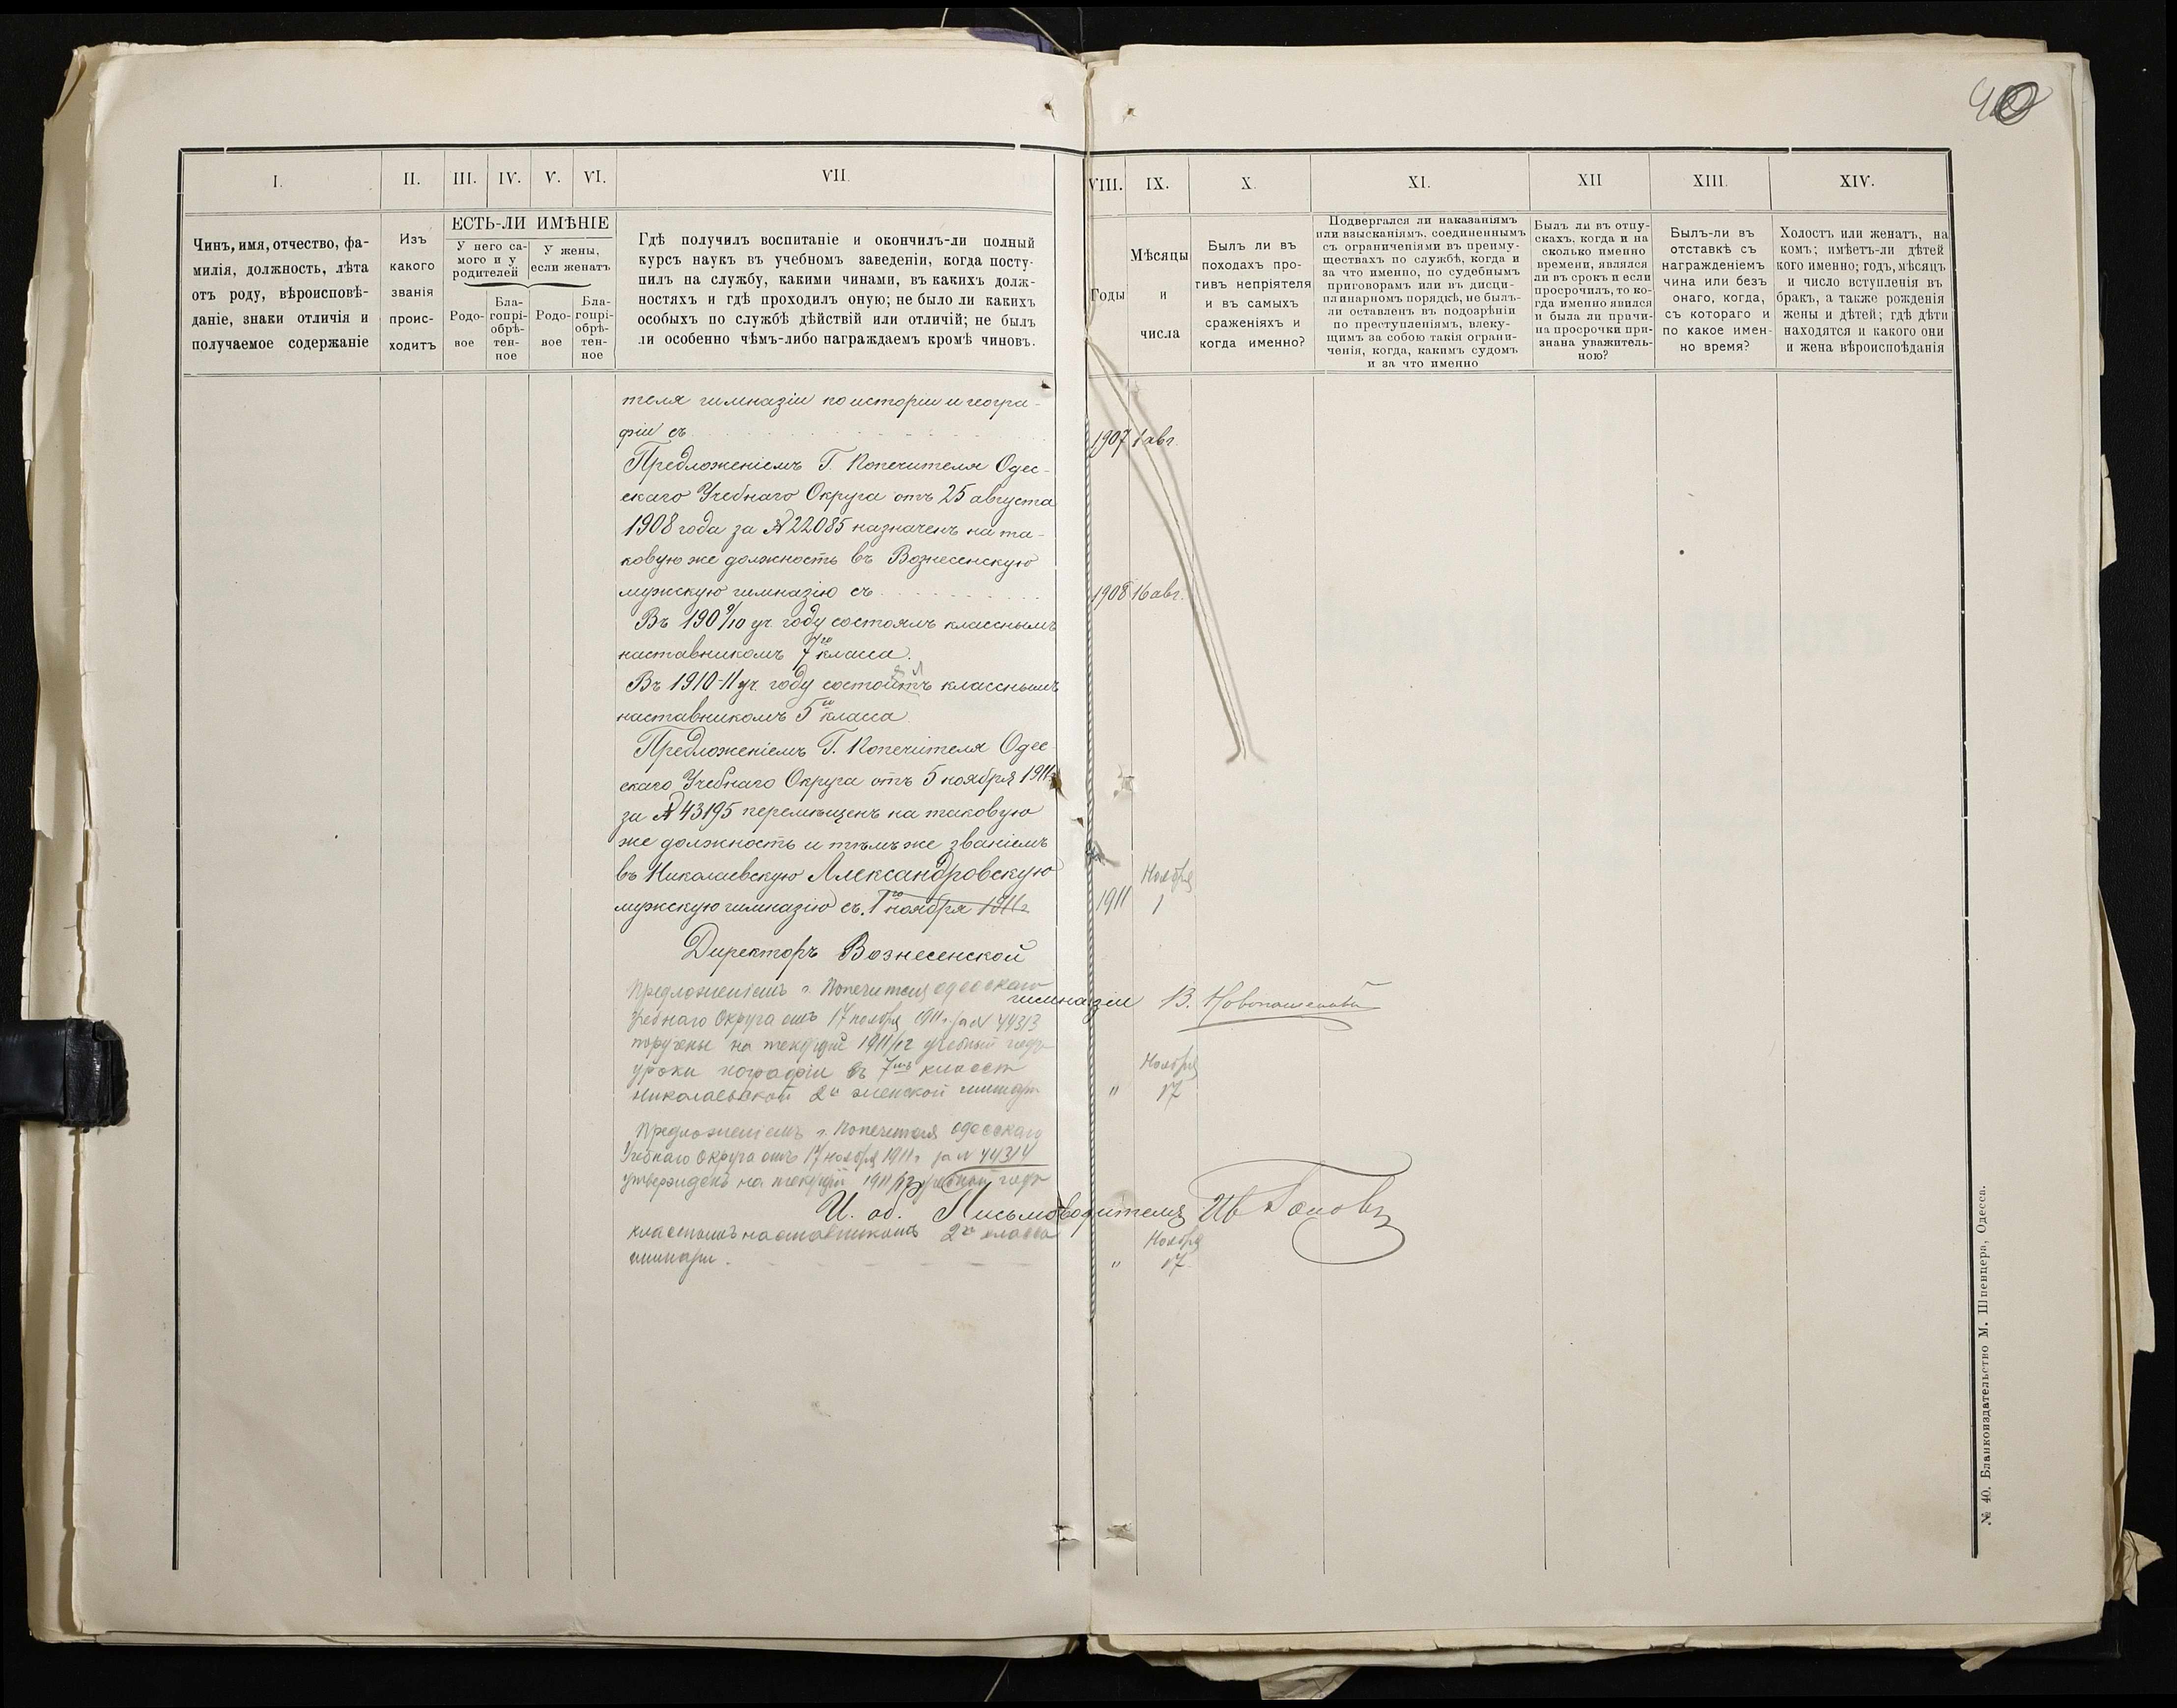 40
I.
II.
III.
IV.
V.
VI.
VII.
VIII.
IX.
X.
XI.
XII
XIII.
XIV.
Чинъ, имя, отчество, фа-
милія, должность, лѣта
отъ роду, вѣроисповѣ-
даніе, знаки отличія и
получаемое содержаніе
Изъ
какого
званія
проис-
ходитъ
ЕСТЬ-ЛИ ИМѢНІЕ
У него са-
мого и у
родителей
У жены,
если женатъ
Родо-
вое
Бла-
гопрі-
обрѣ-
тен-
ное
Родо-
вое
Бла-
гопрі-
обрѣ-
тен-
ное
Гдѣ получилъ воспитаніе и окончилъ-ли полный
курсъ наукъ въ учебномъ заведеніи, когда посту-
пилъ на службу, какими чинами, въ какихъ долж-
ностяхъ и гдѣ проходилъ оную; не было ли какихъ
особыхъ по службѣ дѣйствій или отличій; не былъ
ли особенно чѣмъ-либо награждаемъ кромѣ чиновъ.
Годы
Мѣсяцы
и
числа
Былъ ли въ
походахъ про-
тивъ непріятеля
и въ самыхъ
сраженіяхъ и
когда именно?
Подвергался ли наказаніямъ
или взысканіямъ, соединеннымъ
съ ограниченіями въ преиму-
ществахъ по службѣ, когда и
за что именно, по судебнымъ
приговорамъ или въ дисци-
плинарномъ порядкѣ, не былъ-
ли оставленъ въ подозрѣніи
по преступленіямъ, влеку-
щимъ за собою такія ограни-
ченія, когда, какимъ судомъ
и за что именно
Былъ ли въ отпу-
скахъ, когда и на
сколько именно
времени, являлся
ли въ срокъ и если
просрочилъ, то ко-
гда именно явился
и была ли причи-
на просрочки при-
знана уважитель-
ною?
Былъ-ли въ
отставкѣ съ
награжденіемъ
чина или безъ
онаго, когда,
съ котораго и
по какое имен-
но время?
Холостъ или женатъ, на
комъ; имѣетъ-ли дѣтей
кого именно; годъ, мѣсяцъ
и число вступленія въ
бракъ, а также рожденія
жены и дѣтей; гдѣ дѣти
находятся и какого они
и жена вѣроиспоѣданія
теля гимназіи по исторіи и геогра-
фіи съ 1907 1 авг.
Предложеніемъ Г. Попечителя Одес-
скаго Учебнаго Округа отъ 25 августа
1908 года за № 22085 назначенъ на та-
ковую же должность въ Вознесенскую
мужскую гимназію съ 1908 16 авг.
Въ 1909/10 уч. году состоялъ класснымъ
наставникомъ 7го класса.
Въ 1910-11 уч. году состоитъ ял класснымъ
наставникомъ 5го класса.
Предложеніемъ Г. Попечителя Одес-
скаго Учебнаго Округа отъ 5 ноября 1911 г.
за № 43195 перемѣщенъ на таковую
же должность и тѣмъ же званіемъ
въ Николаевскую Александровскую
мужскую гимназію съ 1го ноября 1911 г. 1911 Ноября 1
Директоръ Вознесенской
гимназіи В.
Предложеніемъ г. Попечителя Одесскаго
Учебнаго Округа отъ 17 ноября 1911 г. за № 44313
поручены на текущій 1911/12 учебный годъ
уроки географіи въ 7мъ классѣ
Николаевской 2й женской гимназіи " Ноября 17
Предложеніемъ г. Попечителя Одесскаго
Учебнаго Округа отъ 17 ноября 1911 г. за № 44314
утвержденъ на текущій 1911/12 учебный годъ
И. об. Письмоводителя Ив
класснымъ наставникомъ 2го класса
гимназіи. " Ноября 17
№ 40. Бланкоиздательство М. Шпенцера, Одесса.